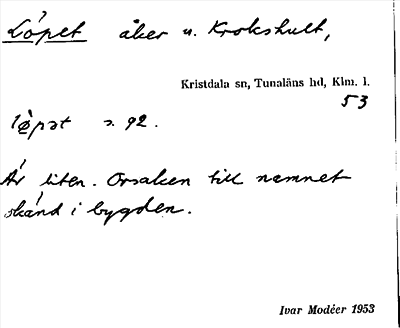 Löpet åker u. Krokshult,
Kristdala sn, Tunaläns hd, Klm. l.
53
löpət s. 92.
Är liten. Orsaken till namnet
okänd i bygden.
Ivar Modéer 1953